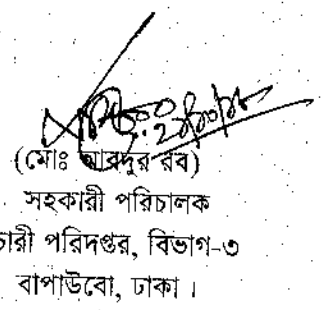 (মোঃ আবদুর রব)
সহকারী পরিচালক
চারী পরিদপ্তর, বিভাগ-৩
বাপাউবো, ঢাকা ।